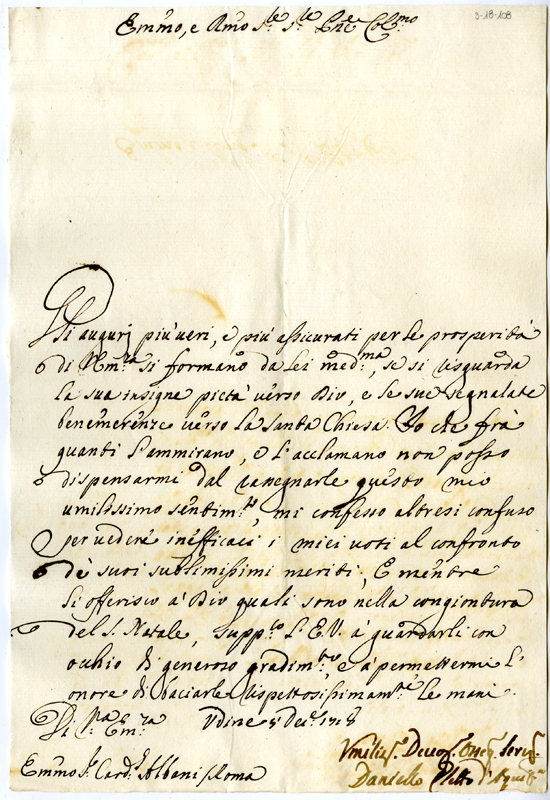 3-18-108
Emmo, e Rmo Sre Sre Pne Colmo
Gli augurj più veri, e più assicurati per le prosperità
di V. Emza si formano da Lei medma, se si risguarda
la sua insigne pietà verso Dio, e le sue segnalate
benemerenze verso la Santa Chiesa. Io che frà
quanti l'ammirano, e l'acclamano non posso
dispensarmi dal rasegnarle questo mio
umilissimo sentimto, mi confesso altresi confuso
per vedere inefficaci i miei voti al confronto
de' suoi sublimissimi meriti, E mentre
li offerisco à Dio quali sono nella congiontura
del S. Natale, suppco l'E.V. à guardarli con
occhio di generoso gradimto, e à permettermi l'
onore di baciarle rispettosissimamte le mani.
Di Va Emza Udine 5 Dece 1718
Umilissº Devos. Obb. Servs.
Emmo Sr Cardl Albani Roma
Daniello Eletto d'Aquilª